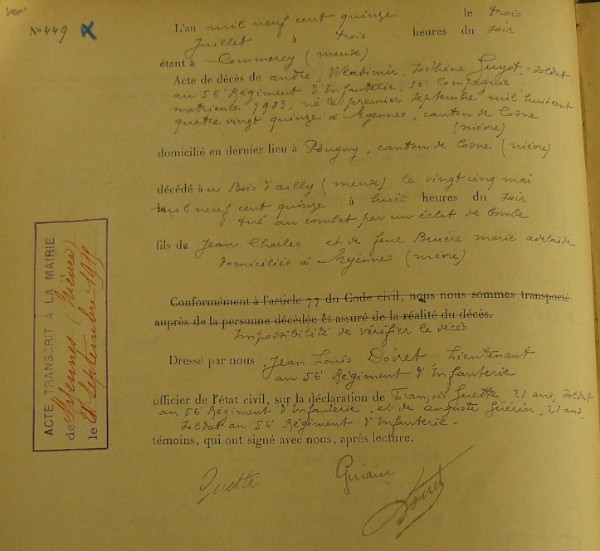 No 449
L'an mil neuf cent quinze le trois
Juillet à trois heures du soir
étant à Commercy (meuse)
Acte de décès de andré, Wladimir, Sosthène Guyot, Soldat
au 56e Régiment d'Infanterie, Compagnie
matricule 7983, né le premier Septembre mil huit cent
quatre vingt quinze à Myennes, canton de Cosne
(nièvre)
domicilié en dernier lieu à Pougny, canton de Cosne (nièvre)
décédé au Bois d'ailly (meuse) le vingt cinq mai
mil neuf cent quinze à huit heures du soir
tué au combat par un éclat de bombe
fils de Jean Charles et de marie adelaïde
domiciliés à Myennes (nièvre)
Conformément à l'article 77 du Code civil, nous nous sommes transporté
auprès de la personne décédée et assuré de la réalité du décès.
Impossibilité de vérifier le décès
Dressé par nous Jean Louis Doiret Lieutenant
au 56e Régiment d'Infanterie
officier de l'état civil, sur la déclaration de François Guette, 21 ans, soldat
au 56e Régiment d'Infanterie, et de auguste Guérin, 21 ans,
Soldat au 56e Régiment d'Infanterie
témoins, qui ont signé avec nous, après lecture.
Guette Guérin Doiret
ACTE TRANSCRIT A LA MAIRIE
de Myennes (Nièvre)
le Septembre 1915